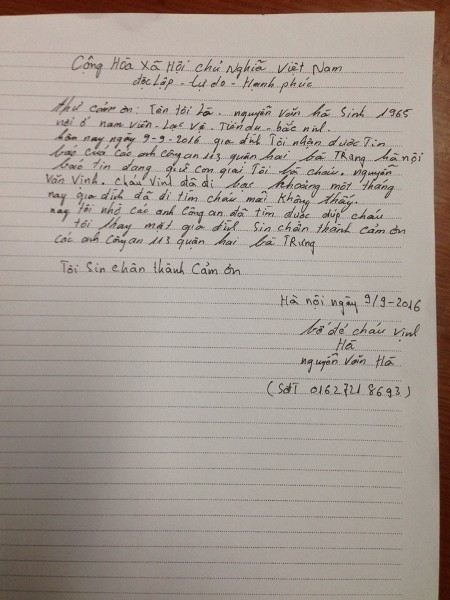 Công Hòa Xã Hội chủ Nghĩa Việt Nam
độc Lập - tự do - Hạnh phúc
thư cảm ơn: Tên tôi Là. nguyễn Văn hà Sinh 1965
nơi ở nam viên - Lạc Vệ. Tiên du - bắc ninh.
hôm nay ngày 9-9-2016 gia đình Tôi nhận được Tin
báo của các anh công an 113 quận hai bà TRưng hà nội
báo tin đang giữ con giai Tôi là cháu. nguyễn
Văn Vinh. cháu Vinh đã đi bạc khoảng một tháng
nay gia đình đã đi tìm cháu mãi không thấy.
nay tôi nhờ các anh công an đã tìm được dúp cháu
tôi thay mặt gia đình Sin chân thành cảm ơn
các anh công an 113 quận hai bà TRưng
Tôi Sin chân thành Cảm ơn
Hà nội ngày 9/9-2016
bố đẻ cháu vinh
Hà
nguyễn Văn Hà
(SđT 01627218693)